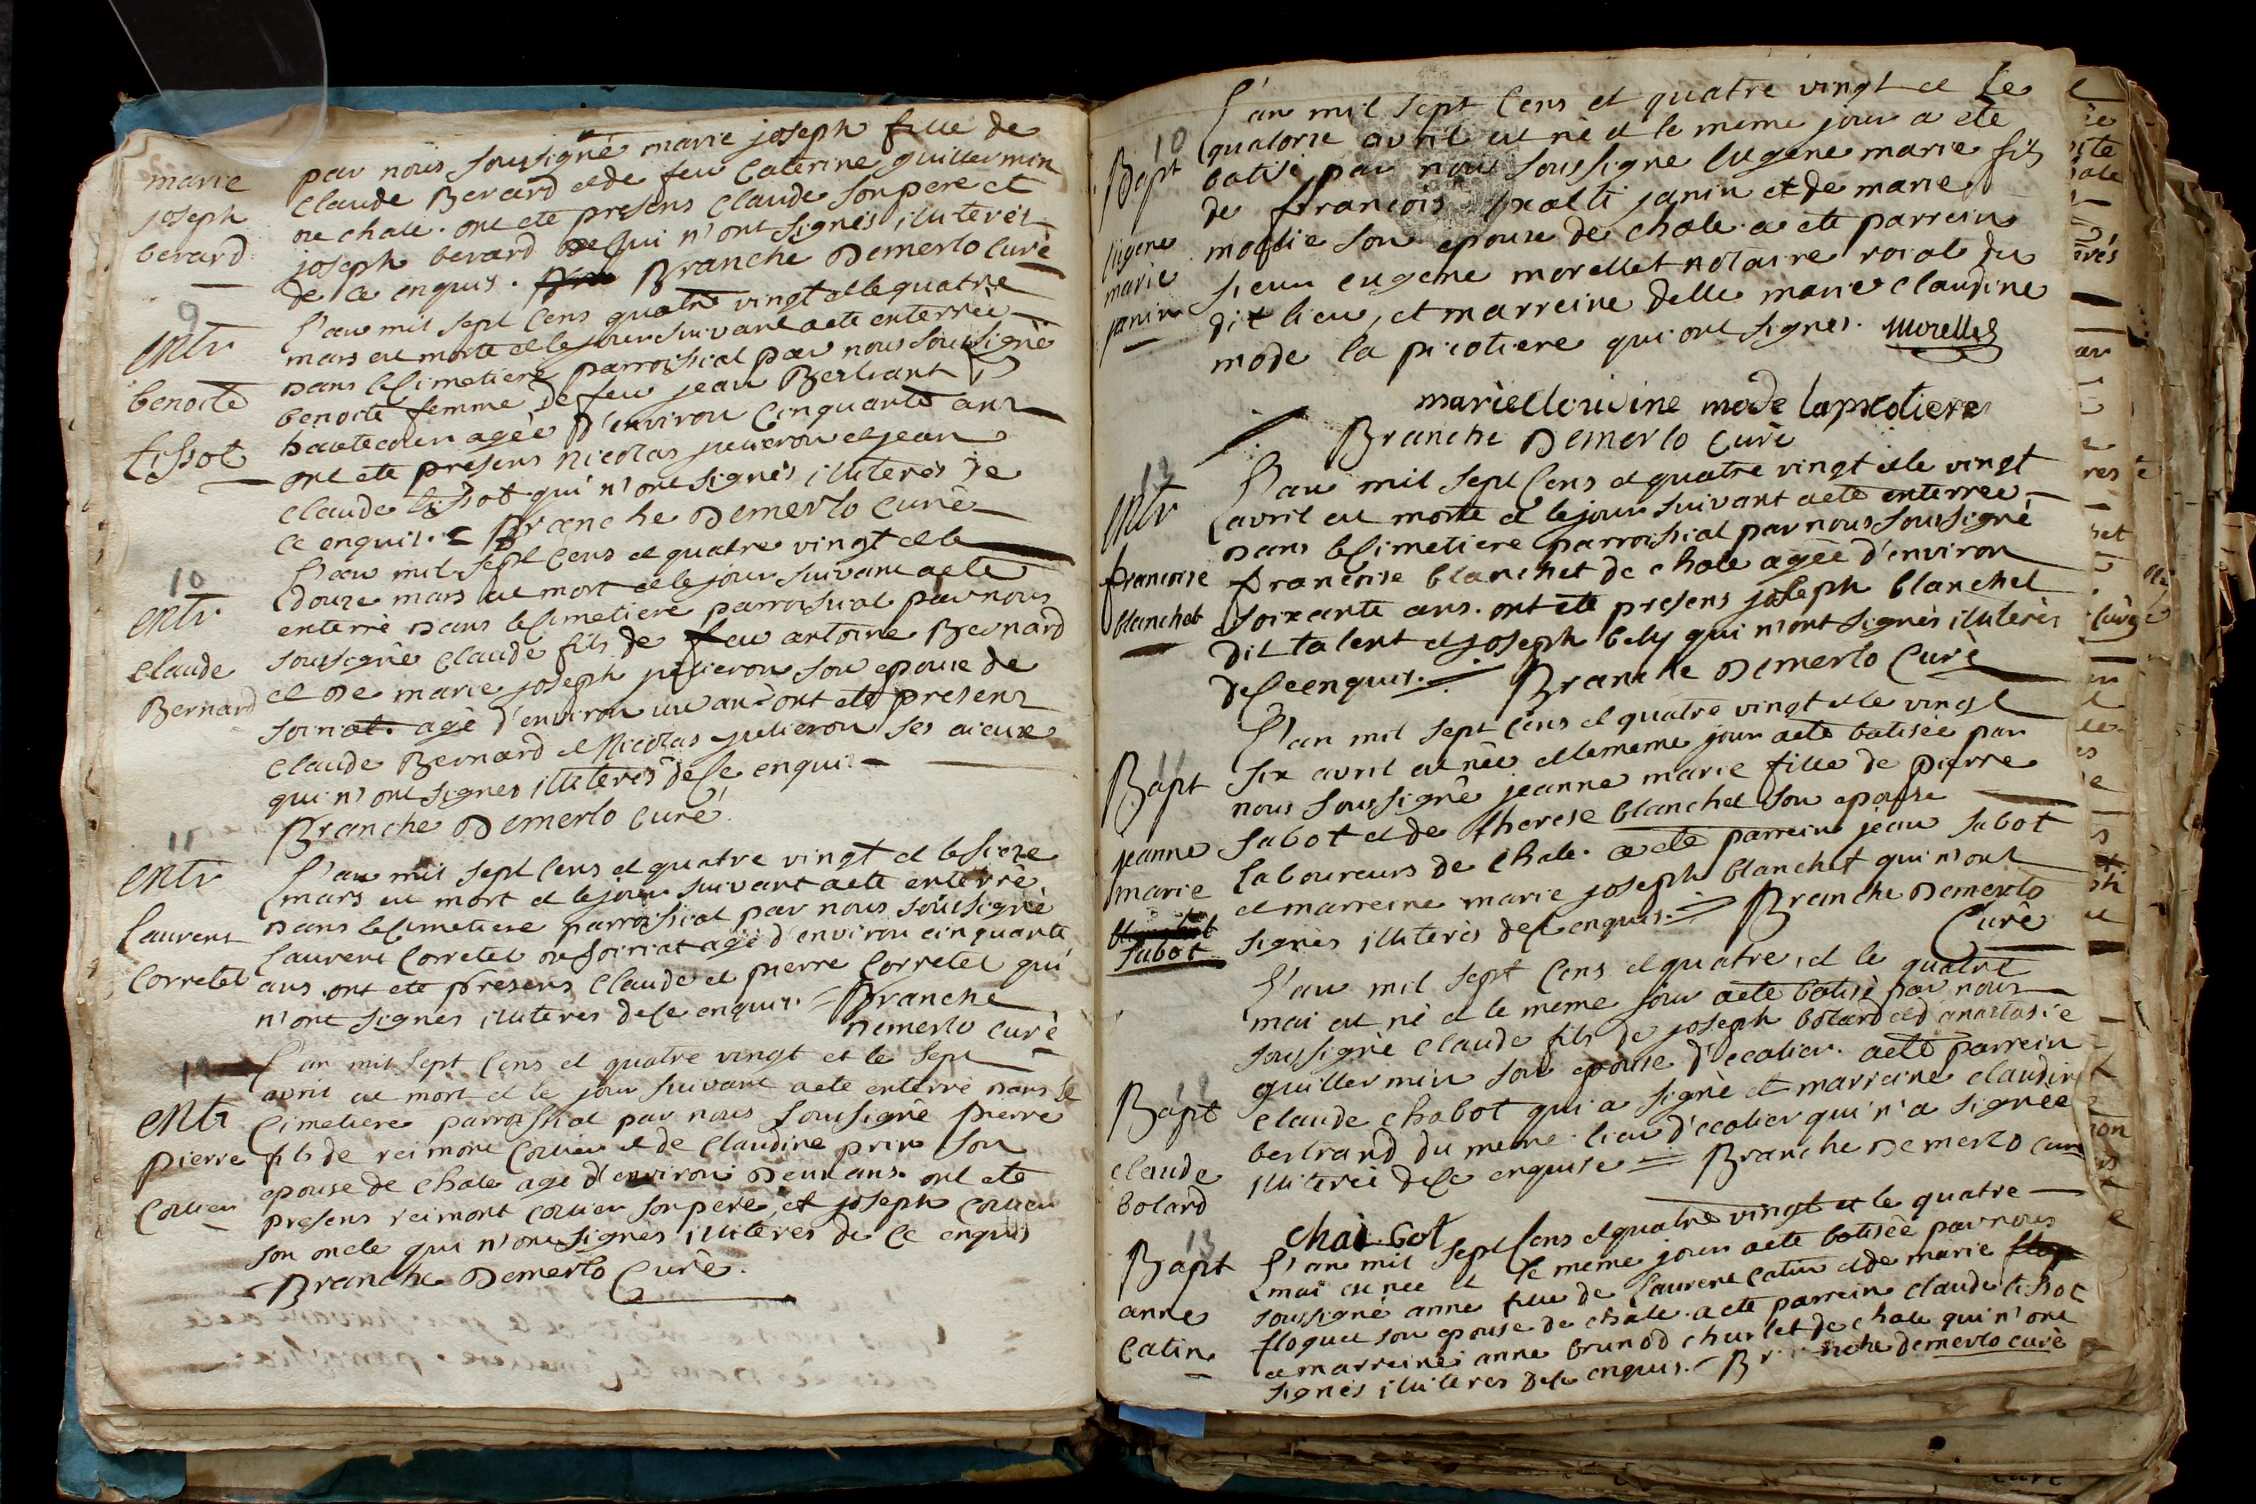 marie
joseph
berard
par nous soussigné marie joseph fille de
claude Berard et de feu Caterine guillermin
de chale. ont ete presens claude son pere et
joseph berard qui n'ont signés illiterés
de ce enquis. Branche Demerlo Curé
9
entr
benoite
tissot
L'an mil sept cens quatre vingt et le quatre
mars est morte et le jour suivant a ete enterrée
Dans le Cimetiere parroissial par nous soussigné
benoite femme de feu jean Berliant
agée d'environ Cinquante ans
ont ete presens nicolas julieron et jean
claude tissot qui n'ont signés illiterés de
ce enquis. Branche Demerlo Curé
10
entr
claude
Bernard
L'an mil sept Cens et quatre vingt et le
douze mars est mort et le jour suivant a ete
enterré Dans le Cimetiere parroissial par nous
soussigné claude fils de feu antoine Bernard
et de marie joseph julieron son epouse de
soiriat agé d'environ un an ont ete presens
claude Bernard et Nicolas julieron ses aieux
qui n'ont signes illiterés de Ce enquis
Branche Demerlo Curé
11
entr
Laurent
Corretel
L'an mil sept Cens et quatre vingt et le seize
mars est mort et le jour suivant a ete enterré
Dans le Cimetiere parroissial par nous soussigné
Laurent Corretel de soiriat agé d'environ cinquante
ans. ont ete presens Claude et pierre Corretel qui
n'ont signés illiteres de Ce enquis. = Branche
Demerlo Curé
12
entr
pierre
L'an mil sept Cens et quatre vingt et le sept
avril est mort et le jour suivant a ete enterré Dans le
Cimetiere parroissial par nous soussigné pierre
fils de reimont et de Claudine prin son
epouse de chale agé d'environ Deux ans. ont ete
presens reimont son pere, et joseph
son oncle qui n'ont signés illiteres de Ce enquis
Branche Demerlo Curé.
10
Bapt
Eugene
marie
janin
L'an mil sept Cens et quatre vingt et le
quatorze avril est né et le meme jour a ete
batisé par nous soussigné Eugene marie fils
de francois janin et de marie
son epouse de chale. a ete parrein
sieur eugene morellet notaire roial du
dit lieu, et marreine delle marie claudine
mode la picotiere qui ont signés. Morellet
mode lapicotiere
Branche Demerlo Curé
13
entr
francoise
blanchet
L'an mil sept Cens et quatre vingt et le vingt
avril est morte et le jour suivant a ete enterrée
Dans le Cimetiere parroissial par nous soussigné
francoise blanchet de chale agée d'environ
soixante ans. ont ete presens joseph blanchet
dit talent et joseph bely qui n'ont signés illiterés
de Ce enquis. = Branche Demerlo Curé
11
Bapt
jeanne
marie
sabot
L'an mil sept Cens et quatre vingt et le vingt
six avril est née et le meme jour a ete batisée par
nous soussigné jeanne marie fille de pierre
sabot et de therese blanchet son epouse
Laboureurs de chale. a ete parrein jean sabot
et marreine marie joseph blanchet qui n'ont
signés illiterés de Ce enquis. = Branche Demerlo
Curé
12
Bapt
claude
bolard
L'an mil sept Cens et quatre, et le quatre
mai est né et le meme jour a ete batisé par nous
soussigné claude fils de joseph bolard et d'anastasie
guillermin son epouse d'ecolier. a ete parrein
claude chabot qui a signé et marreine claudine
bertrand du meme lieu d'ecolier qui n'a signée
illiterée de Ce enquise = Branche Demerlo curé
13
Bapt
anne
Catin
L'an mil sept Cens et quatre vingt et le quatre
mai est née et le meme jour a ete batisée par nous
soussigné anne fille de Laurent Catin et de marie
floquet son epouse de chale. a ete parrein claude tissot
et marreine anne brunod churlet de chale qui n'ont
signés illiteres de Ce enquis. = Branche demerlo curé